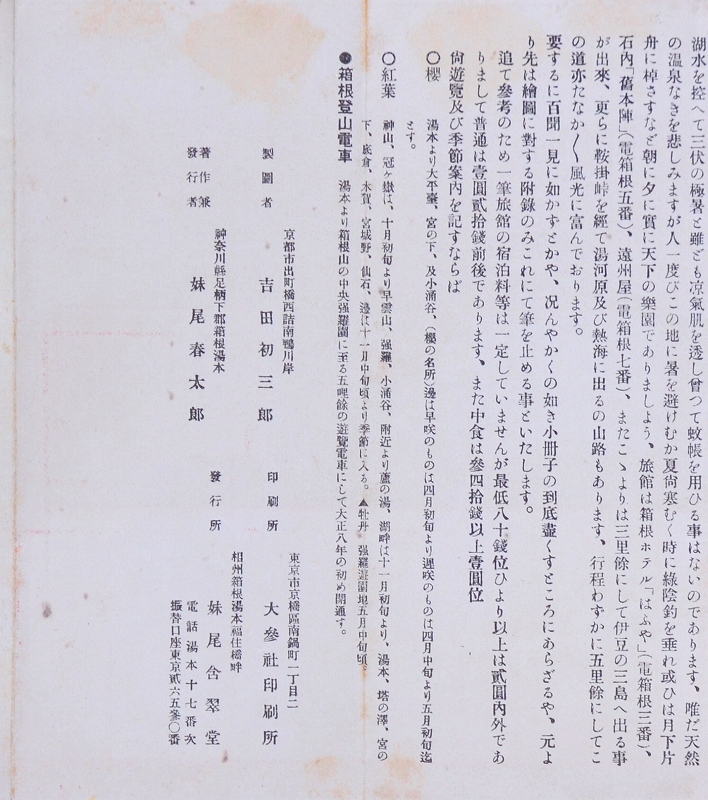 湖水を控へて三伏の極暑と雖ども凉氣肌を透し曾つて蚊帳を用ひる事はないのであります、唯だ天然
の温泉なきを悲しみますが人一度びこの地に暑を避けむか夏尙寒むく時に綠陰釣を垂れ或ひは月下片
舟に棹さすなど朝に夕に實に天下の樂園でありましよう、旅館は箱根ホテル「はふや」(電箱根三番)、
石内「舊本陣」(電箱根五番)、遠州屋(電箱根七番)、またこゝよりは三里餘にして伊豆の三島へ出る事
が出來、更らに鞍掛峠を經て湯河原及び熱海に出るの山路もあります、行程わずかに五里餘にしてこ
の道亦たなか〱風光に富んでおります。
要するに百聞一見に如かずとかや、况んやかくの如き小冊子の到底盡くすところにあらざるや、元よ
り先は繪圖に對する附錄のみこれにて筆を止める事といたします。
追て參考のため一筆旅舘の宿泊料等は一定していませんが最低八十錢位ひより以上は貳圓內外であ
りまして普通は壹圓貳拾錢前後であります、また中食は參四拾錢以上壹圓位
尙遊覽及び季節案內を記すならば
〇櫻 湯本より大平臺、宮の下、及小涌谷、(櫻の名所)邊は早咲のものは四月初旬より遲咲のものは四月中旬より五月初旬迄
とす。
〇紅葉 神山、冠ヶ嶽は、十月初旬より早雲山、强羅、小涌谷、附近より蘆の湯、湖畔は十一月初旬より、湯本、塔の澤、宮の
下、底倉、木賀、宮城野、仙石、邊は十一月中旬頃より季節に入る。▲牡丹 强羅遊園地五月中旬頃。
●箱根登山電車 湯本より箱根山の中央强羅園に至る五哩餘の遊覽電車にして大正八年の初め開通す。
製圖者 京都市出町橋西詰南鴨川岸
吉田初三郎
著作兼
發行者 神奈川縣足柄下郡箱根湯本
妹尾春太郎
印刷所 東京市京橋區南鍋町一丁目二
大參社印刷所
發行所 相州箱根湯本福住橋畔
妹尾含翠堂
電話湯本十七番次
振替口座東京貳六五參〇番